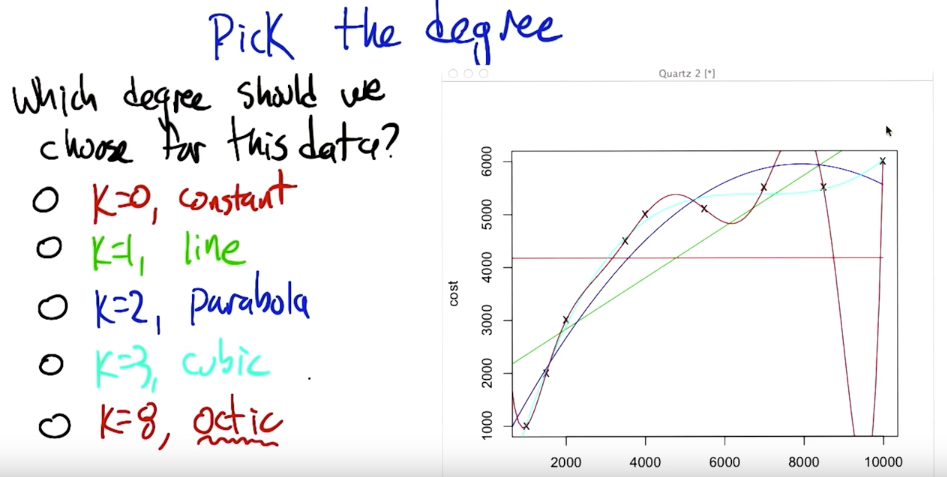 Pick the degree
Which degree should we
choose for this data?
K=0, constant
K=1, line
K=2, parabola
K=3, cubic
K=8, octic
Quartz 2 [*]
6000
5000
4000
3000
2000
1000
cost
2000 4000 6000 8000 10000